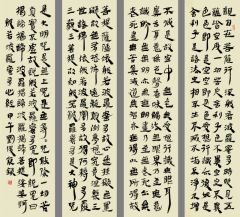 觀自在菩薩行深般若波羅蜜多時照見五
蘊皆空度一切苦厄舍利子色不異空空不異
色色即是空空即是色受想行識亦復如是
舍利子是諸法空相不生不滅不垢不淨
不增不減是故空中無色無受想行識
無眼耳鼻舌身意無色聲香味觸法
無眼界乃至無意識界無無明亦無無明
盡乃至無老死亦無老死盡無苦集滅
道無智亦無得以無所得故
菩提薩埵依般若波羅蜜多故心無罣礙
無罣礙故無有恐怖遠離顛倒夢想究竟
涅槃三世諸佛依般若波羅蜜多故得阿耨多羅
三藐三菩提故知般若波羅蜜多是大神咒
是大明咒是無上咒是無等等咒能除一切苦
真實不虛故說般若波羅蜜多咒即說咒曰
揭諦揭諦波羅揭諦波羅僧揭諦菩提薩婆訶
般若波羅蜜多心經